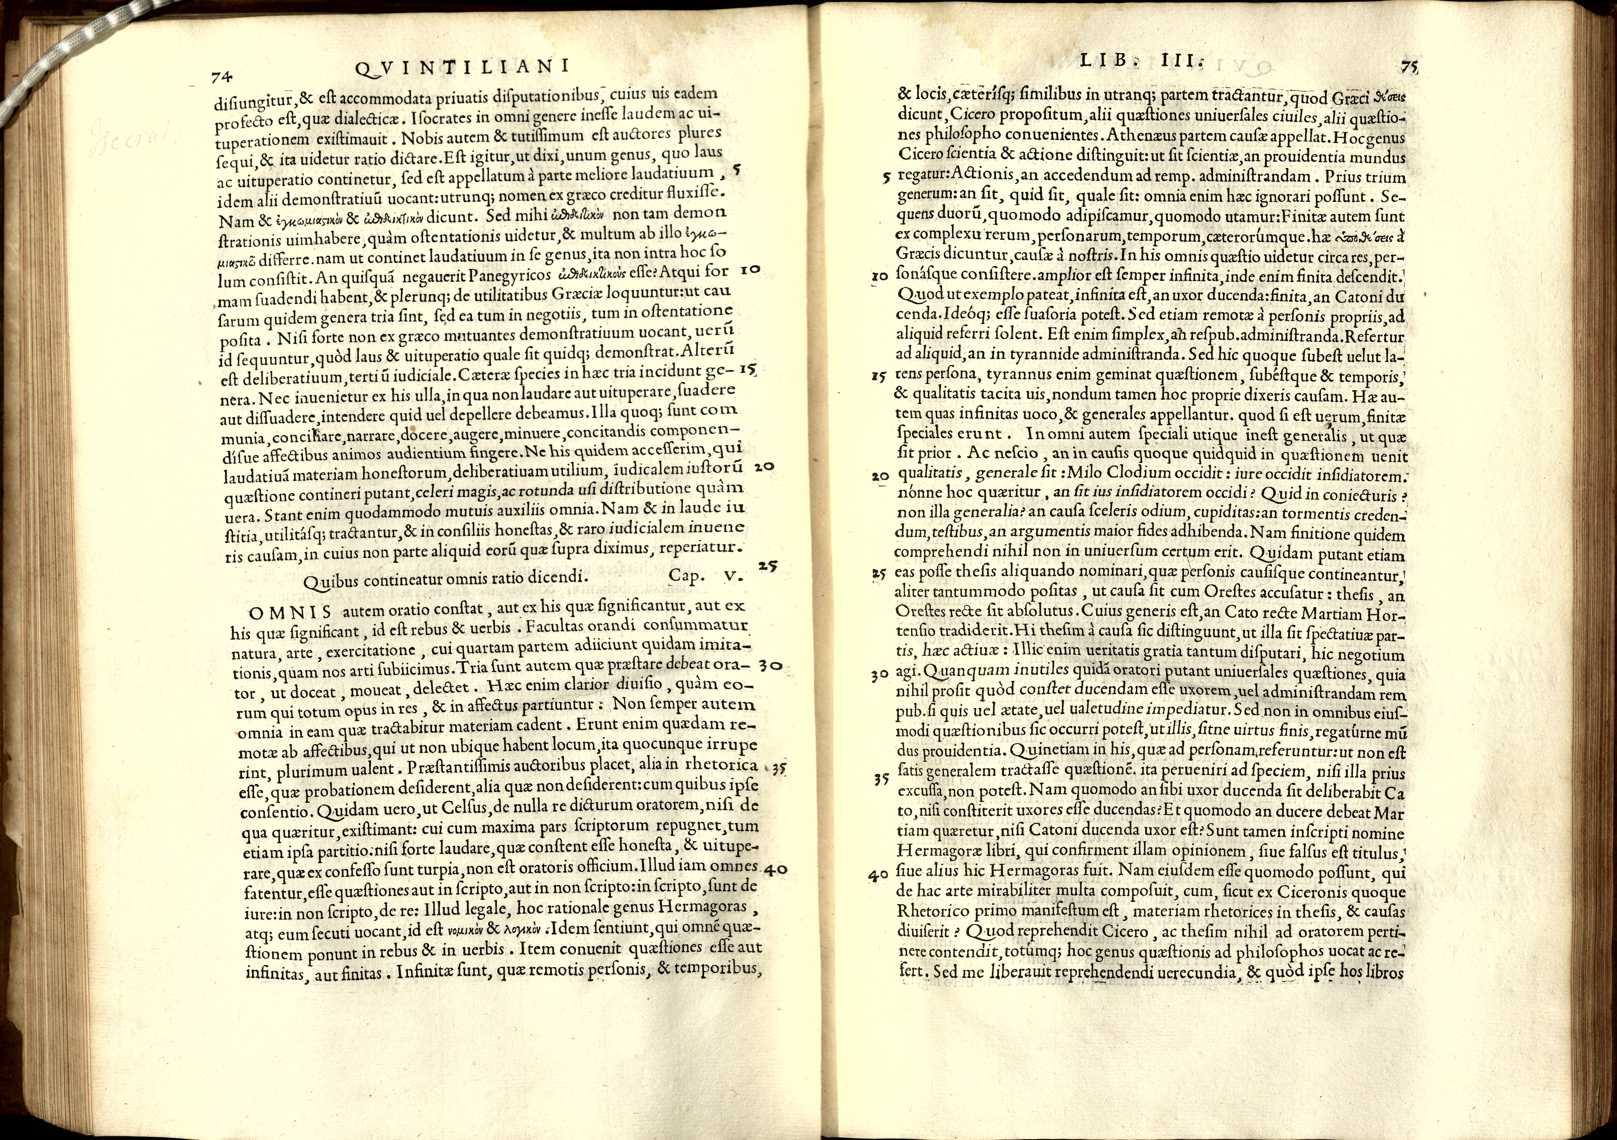 74
QVINTILIANI
disiungitur, & est accommodata priuatis disputationibus, cuius uis eadem
profecto est, quæ dialecticæ. Isocrates in omni genere inesse laudem ac ui-
tuperationem existimauit. Nobis autem & tutissimum est auctores plures
sequi, & ita uidetur ratio dictare. Est igitur, ut dixi, unum genus, quo laus
ac uituperatio continetur, sed est appellatum à parte meliore laudatiuum, 5
idem alii demonstratiuũ uocant: utrunq; nomen ex græco creditur fluxisse.
Nam & ἐγκωμιαστικὸν & ἐπιδεικτικὸν dicunt. Sed mihi ἐπιδεικτικὸν non tam demon
strationis uim habere, quàm ostentationis uidetur, & multum ab illo ἐγκω-
μιαστικῶ differre. nam ut continet laudatiuum in se genus, ita non intra hoc so
lum consistit. An quisquã negauerit Panegyricos ἐπιδεικτικοὺς esse? Atqui for 10
mam suadendi habent, & plerunq; de utilitatibus Græciæ loquuntur: ut cau
sarum quidem genera tria sint, sed ea tum in negotiis, tum in ostentatione
posita. Nisi forte non ex græco mutuantes demonstratiuum uocant, uerũ
id sequuntur, quòd laus & uituperatio quale sit quidq; demonstrat. Alterũ
est deliberatiuum, tertiũ iudiciale. Cæteræ species in hæc tria incidunt ge- 15
nera. Nec inuenietur ex his ulla, in qua non laudare aut uituperare, suadere
aut dissuadere, intendere quid uel depellere debeamus. Illa quoq; sunt com
munia, conciliare, narrare, docere, augere, minuere, concitandis componen-
disue affectibus animos audientium fingere. Ne his quidem accesserim, qui
laudatiuã materiam honestorum, deliberatiuam utilium, iudicalem iustorũ 20
quæstione contineri putant, celeri magis, ac rotunda usi distributione quàm
uera. Stant enim quodammodo mutuis auxiliis omnia. Nam & in laude iu
stitia, utilitásq; tractantur, & in consiliis honestas, & raro iudicialem inuene
ris causam, in cuius non parte aliquid eorũ quæ supra diximus, reperiatur.
Quibus contineatur omnis ratio dicendi. Cap. V. 25
OMNIS autem oratio constat, aut ex his quæ significantur, aut ex
his quæ significant, id est rebus & uerbis. Facultas orandi consummatur
natura, arte, exercitatione, cui quartam partem adiiciunt quidam imita-
tionis, quam nos arti subiicimus. Tria sunt autem quæ præstare debeat ora- 30
tor, ut doceat, moueat, delectet. Hæc enim clarior diuisio, quàm eo-
rum qui totum opus in res, & in affectus partiuntur: Non semper autem
omnia in eam quæ tractabitur materiam cadent. Erunt enim quædam re-
motæ ab affectibus, qui ut non ubique habent locum, ita quocunque irrupe
rint, plurimum ualent. Præstantissimis auctoribus placet, alia in rhetorica 35
esse, quæ probationem desiderent, alia quæ non desiderent: cum quibus ipse
consentio. Quidam uero, ut Celsus, de nulla re dicturum oratorem, nisi de
qua quæritur, existimant: cui cum maxima pars scriptorum repugnet, tum
etiam ipsa partitio: nisi forte laudare, quæ constent esse honesta, & uitupe-
rare, quæ ex confesso sunt turpia, non est oratoris officium. Illud iam omnes 40
fatentur, esse quæstiones aut in scripto, aut in non scripto: in scripto, sunt de
iure: in non scripto, de re: Illud legale, hoc rationale genus Hermagoras,
atq; eum secuti uocant, id est νομικὸν & λογικὸν. Idem sentiunt, qui omnẽ quæ-
stionem ponunt in rebus & in uerbis. Item conuenit quæstiones esse aut
infinitas, aut finitas. Infinitæ sunt, quæ remotis personis, & temporibus,
LIB. III.
75
& locis, cæterísq; similibus in utranq; partem tractantur, quod Græci θέσεις
dicunt, Cicero propositum, alii quæstiones uniuersales ciuiles, alii quæstio-
nes philosopho conuenientes. Athenæus partem causæ appellat. Hoc genus
Cicero scientia & actione distinguit: ut sit scientiæ, an prouidentia mundus
5 regatur: Actionis, an accedendum ad remp. administrandam. Prius trium
generum: an sit, quid sit, quale sit: omnia enim hæc ignorari possunt. Se-
quens duorũ, quomodo adipiscamur, quomodo utamur: Finitæ autem sunt
ex complexu rerum, personarum, temporum, cæterorúmque. hæ ὑποθέσεις à
Græcis dicuntur, causæ à nostris. In his omnis quæstio uidetur circa res, per-
10 sonásque consistere. amplior est semper infinita, inde enim finita descendit.
Quod ut exemplo pateat, infinita est, an uxor ducenda: finita, an Catoni du
cenda. Ideóq; esse suasoria potest. Sed etiam remotæ à personis propriis, ad
aliquid referri solent. Est enim simplex, an respub. administranda. Refertur
ad aliquid, an in tyrannide administranda. Sed hic quoque subest uelut la-
15 tens persona, tyrannus enim geminat quæstionem, subéstque & temporis,
& qualitatis tacita uis, nondum tamen hoc proprie dixeris causam. Hæ au-
tem quas infinitas uoco, & generales appellantur. quod si est uerum, finitæ
speciales erunt. In omni autem speciali utique inest generalis, ut quæ
sit prior. Ac nescio, an in causis quoque quidquid in quæstionem uenit
20 qualitatis, generale sit: Milo Clodium occidit: iure occidit insidiatorem.
nónne hoc quæritur, an sit ius insidiatorem occidi? Quid in coniecturis?
non illa generalia? an causa sceleris odium, cupiditas: an tormentis creden-
dum, testibus, an argumentis maior fides adhibenda. Nam finitione quidem
comprehendi nihil non in uniuersum certum erit. Quidam putant etiam
25 eas posse thesis aliquando nominari, quæ personis causisque contineantur,
aliter tantummodo positas, ut causa sit cum Orestes accusatur: thesis, an
Orestes recte sit absolutus. Cuius generis est, an Cato recte Martiam Hor-
tensio tradiderit. Hi thesim à causa sic distinguunt, ut illa sit spectatiuæ par-
tis, hæc actiuæ: Illic enim ueritatis gratia tantum disputari, hic negotium
30 agi. Quanquam inutiles quidã oratori putant uniuersales quæstiones, quia
nihil prosit quòd constet ducendam esse uxorem, uel administrandam rem
pub. si quis uel ætate, uel ualetudine impediatur. Sed non in omnibus eius-
modi quæstionibus sic occurri potest, ut illis, sitne uirtus finis, regatúrne mũ
dus prouidentia. Quinetiam in his, quæ ad personam referuntur: ut non est
35 satis generalem tractasse quæstionẽ. ita perueniri ad speciem, nisi illa prius
excussa, non potest. Nam quomodo an sibi uxor ducenda sit deliberabit Ca
to, nisi constiterit uxores esse ducendas? Et quomodo an ducere debeat Mar
tiam quæretur, nisi Catoni ducenda uxor est? Sunt tamen inscripti nomine
Hermagoræ libri, qui confirment illam opinionem, siue falsus est titulus,
40 siue alius hic Hermagoras fuit. Nam eiusdem esse quomodo possunt, qui
de hac arte mirabiliter multa composuit, cum, sicut ex Ciceronis quoque
Rhetorico primo manifestum est, materiam rhetorices in thesis, & causas
diuiserit? Quod reprehendit Cicero, ac thesim nihil ad oratorem perti-
nere contendit, totúmq; hoc genus quæstionis ad philosophos uocat ac re-
fert. Sed me liberauit reprehendendi uerecundia, & quòd ipse hos libros